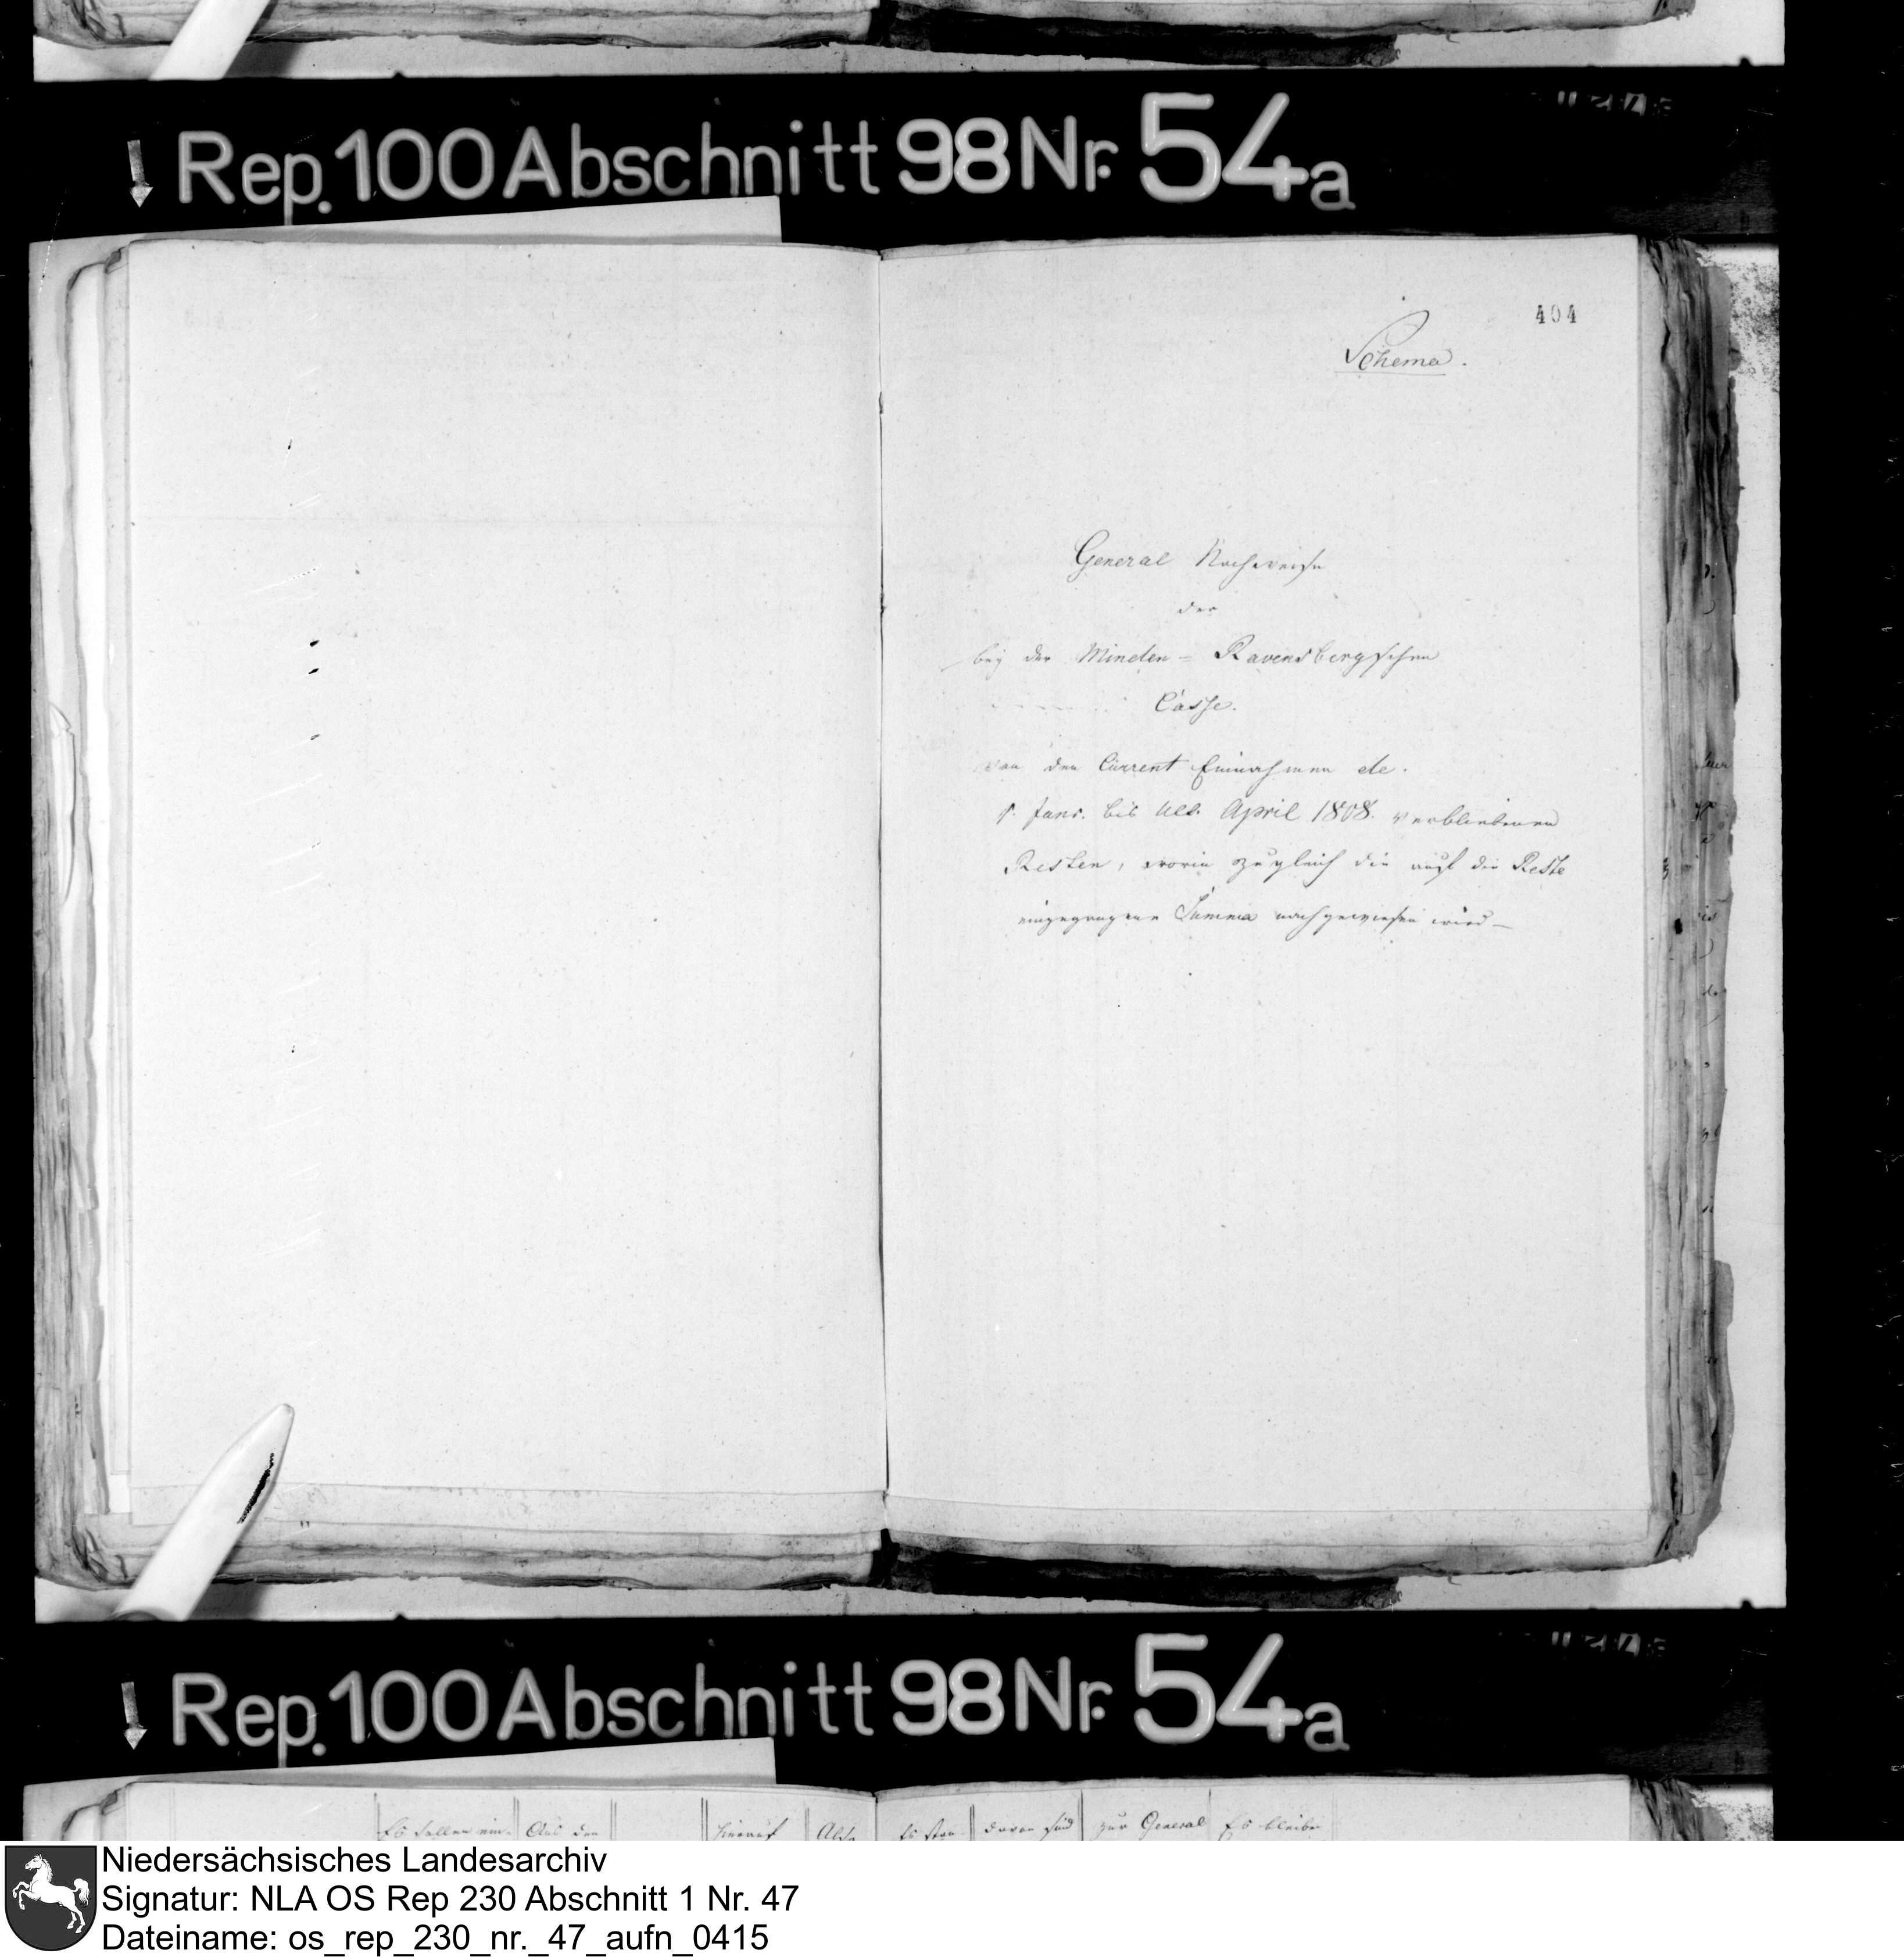 Rep. 100 Abschnitt 98 Nr. 54a
404
Schema.
General Nachweise
der
bey der Minden=Ravensbergschen
Casse.
von den Current Einnahmen de
1. Janr. bis ult. April 1808. verbliebenen
Resten, worin zugleich die auf die Reste
eingegangene Summa nachgewiesen wird
Rep. 100 Abschnitt 98 Nr. 54a
Es sollen ein- Aus den hierauf Also davon sind zur General Es bleibe
Niedersächsisches Landesarchiv
Signatur: NLA OS Rep 230 Abschnitt 1 Nr. 47
Dateiname: os_rep_230_nr._47_aufn_0415